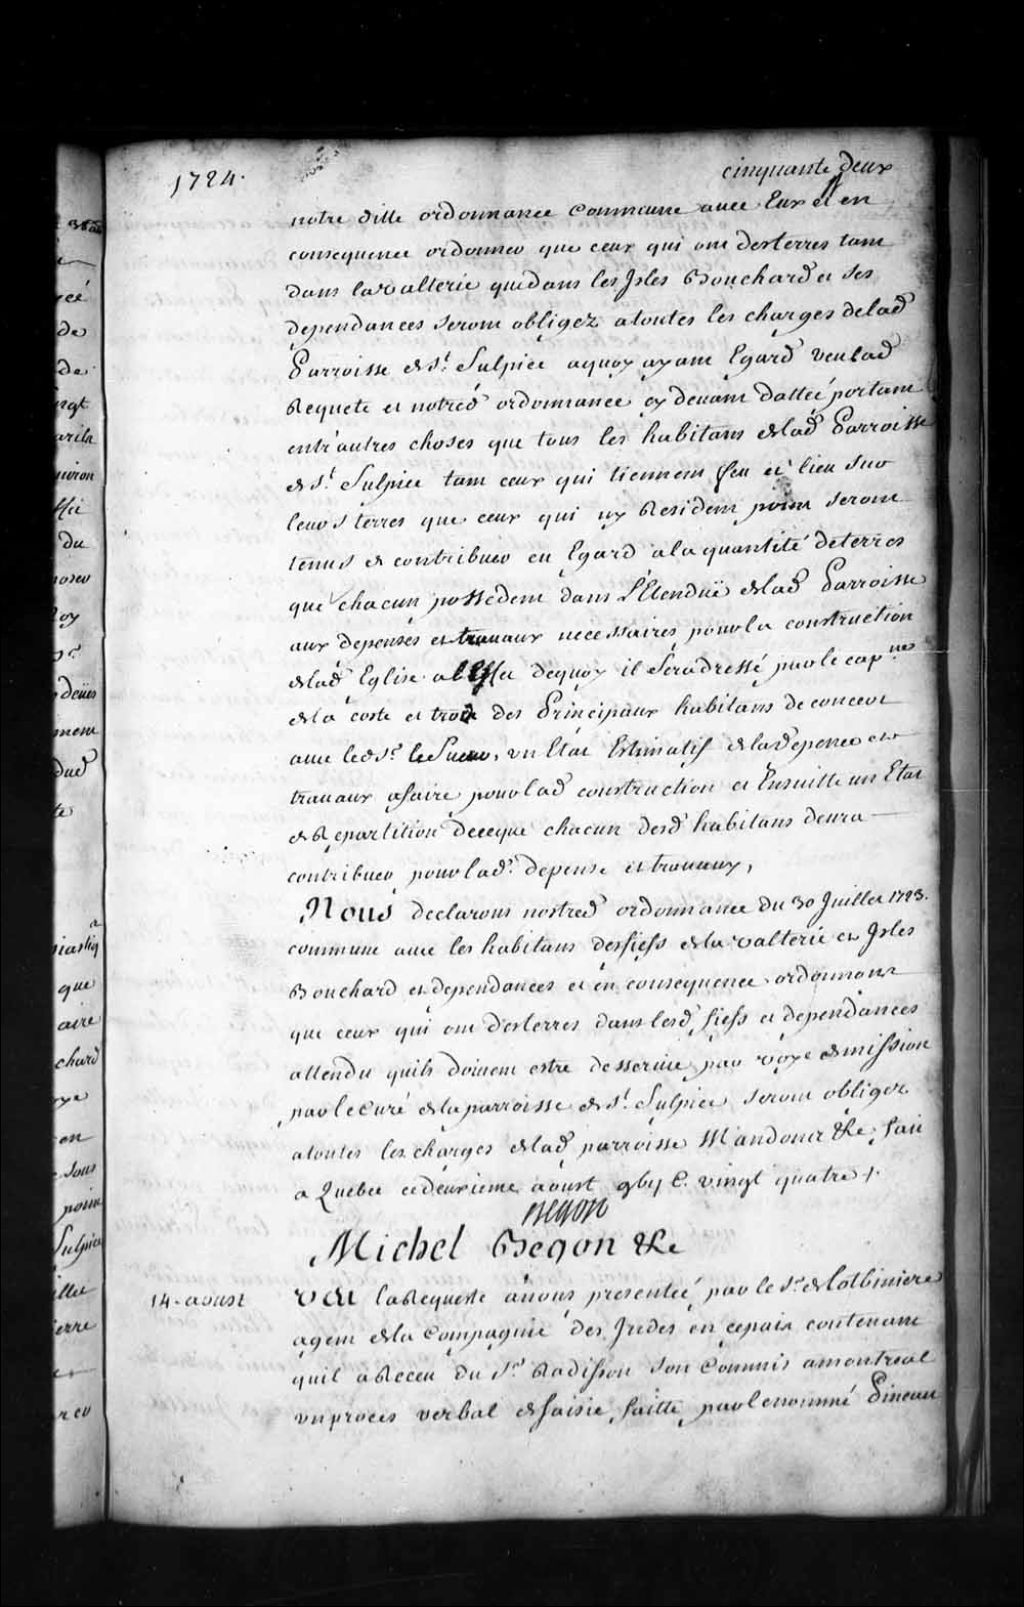 1724.
cinquante deux
notre ditte ordonnance commune avec Eux et en
consequence ordonner que ceux qui ont des terres tant
dans la valterie que dans les Isles Bouchard et ses
dependances seront obligez a toutes les charges de lad
Parroisse de St. Sulpice aquoy ayant Egard veu lad
Requete et notred ordonnance cy devant dattée portant
entr'autres choses que tous les habitans de lad Parroisse
de St. Sulpice tant ceux qui tiennent feu et lieu sur
leurs terres que ceux qui ny Resident point seront
tenus de contribuer eu Egard a la quantité de terres
que chacun possedent dans L'Etenduë de lad Parroisse
aux depenses et travaux necessaires pour la construction
de lad Eglise a l'Effet dequoy il sera dressé par le capne
de la coste et trois des Principaux habitans de concert
avec led Sr. le Sueur, un Etat Estimatif de la depence et
travaux afaire pour lad construction et Ensuitte un Etat
de Repartition de ceque chacun desd habitans devra
contribuer pour lad. depense et travaux,
Nous declarons nostred ordonnance du 30 Juillet 1723.
commune avec les habitans des fiefs de la valterie et Isles
Bouchard et dependances et en consequence ordonnons
que ceux qui ont des terres dans lesd fiefs et dependances
attendu quils doivent estre desservie par voye de mission
par le Curé de la parroisse de St. Sulpice seront obligez
a toutes les charges de lad parroisse Mandons &c. fait
a Quebec ce deuxieme aoust gbij C. vingt quatre
Begon
Michel Begon &c
14. aoust
Veu la Requeste a nous presentée par le Sr. de Lotbiniere
agent de la Compagnie des Indes en ce païs contenant
quil a Receu du Sr. Radisson son Commis a montreal
un proces verbal de saisie faitte par le nommé Pineau